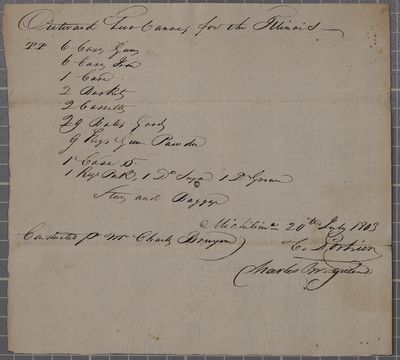 Outward Two Canoes for the Illinois
PP 6 Cases Guns
6 Cases Iron
1 Case
2 Baskets
2 Cassettes
29 Bales Goods
9 Kegs Gun Powder
1 Case
1 Keg Pork, 1 Do Sugar 1 Do Grease
and Baggage
Michilima 20th July 1803
Conducted p Mr Charls
Charles